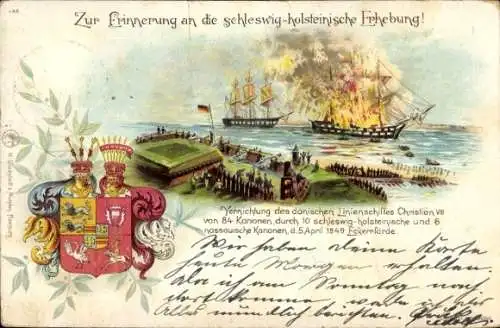 Zur Erinnerung an die schleswig-holsteinische Erhebung!
Vernichtung des dänischen Linienschiffes Christian VIII
von 84 Kanonen, durch 10 schleswig-holsteinische und 6
nassauische Kanonen, d. 5. April 1849 Eckernförde.
Wir haben deine Karte
heute Morgen erhalten.
da ich am Sonntag nach
dort komme, will ich dir
Alles mündlich berichten.